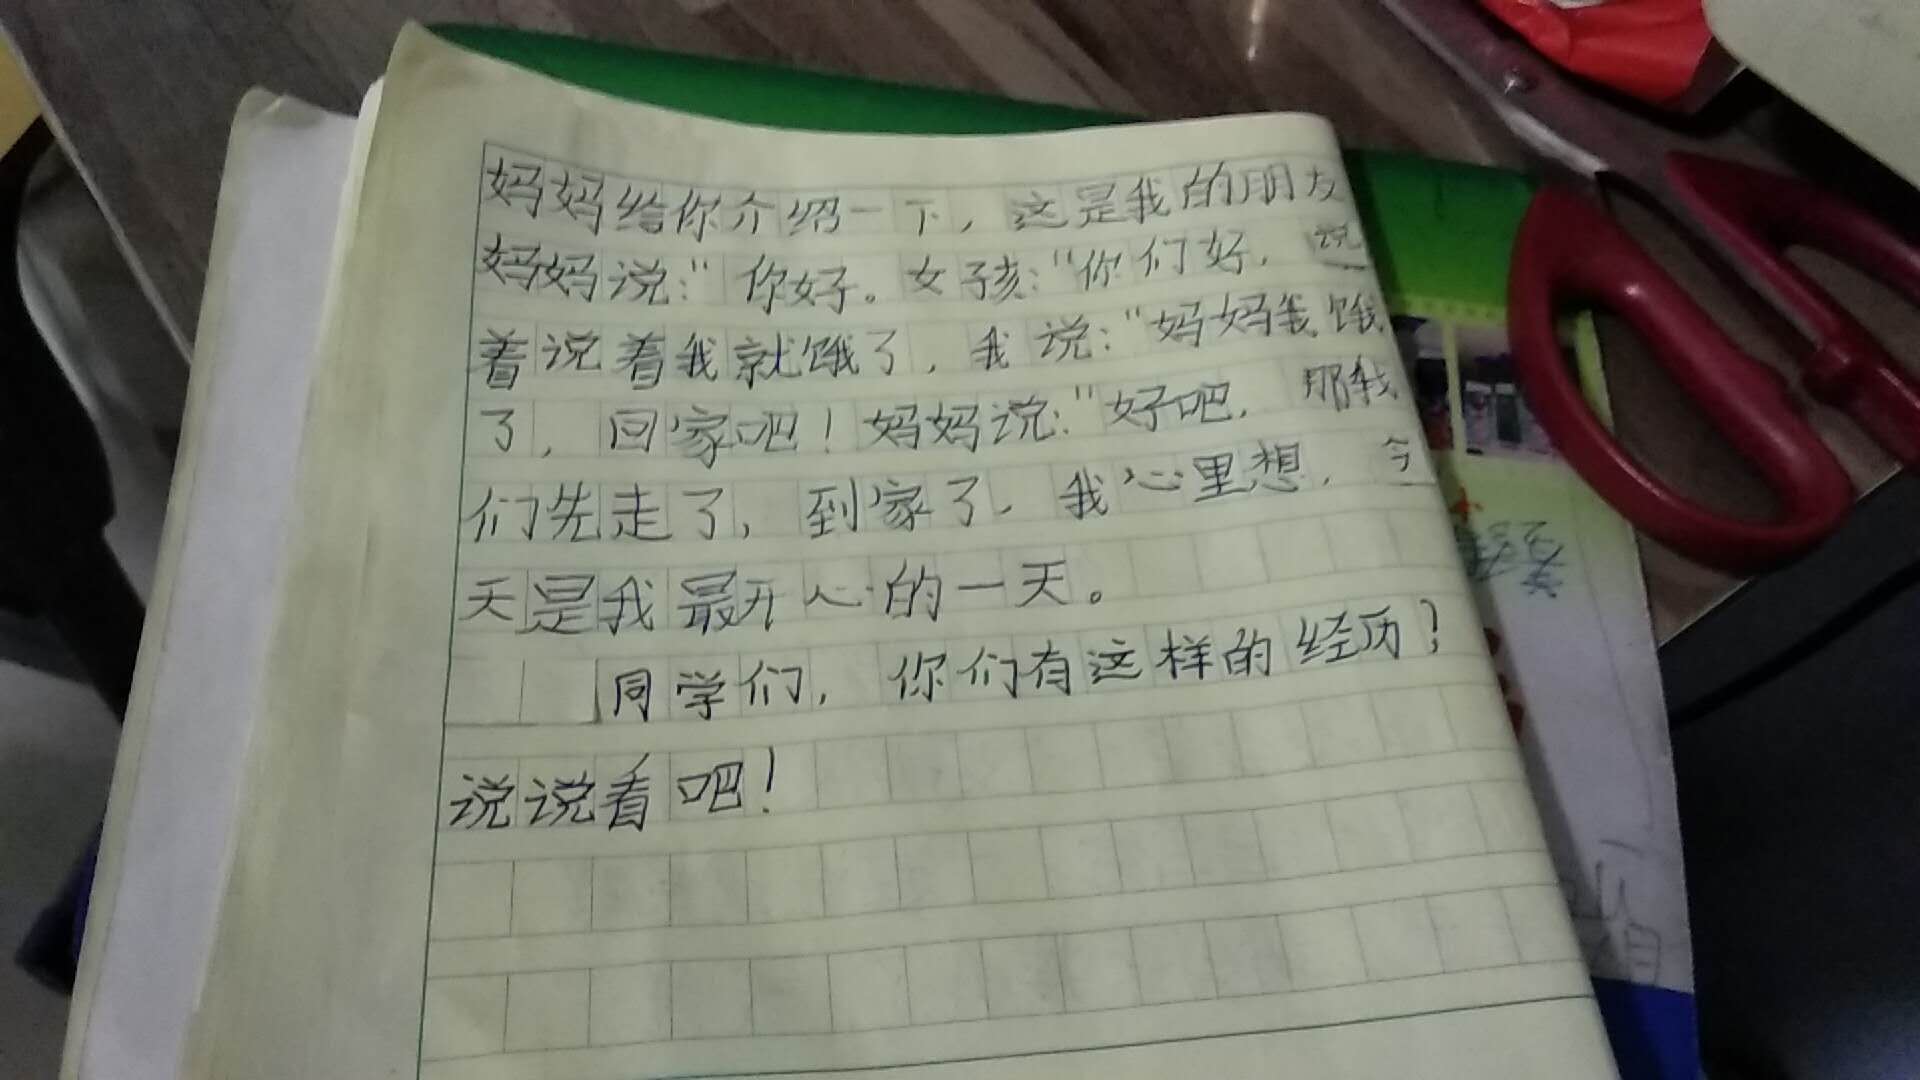 妈妈给你介绍一下，这是我的朋友
妈妈说:"你好。女孩:"你们好，说
着说着我就饿了，我说:"妈妈我饿
了，回家吧！妈妈说:"好吧，那我
们先走了，到家了，我心里想，今
天是我最开心的一天。
同学们，你们有这样的经历？
说说看吧！